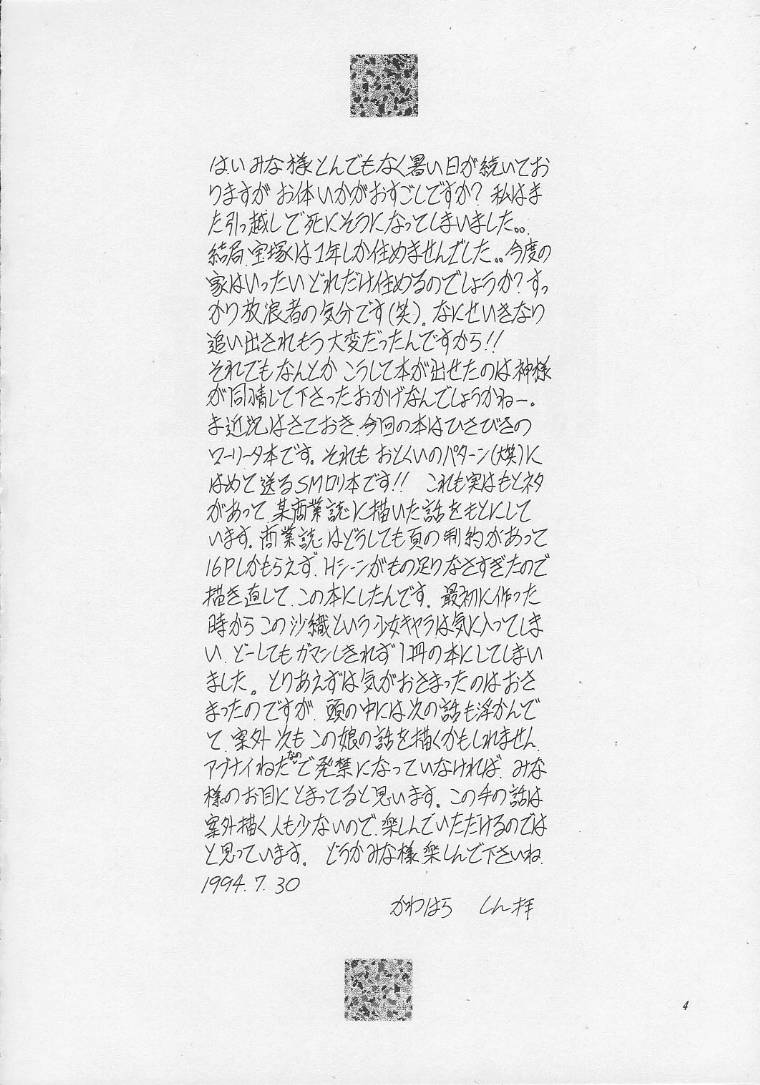 はい みな様 とんでもなく暑い日が続いてお
りますが お体いかがおすごしですか? 私はま
た引っ越しで死にそうになってしまいました。。
結局、宝塚は1年しか住めませんでした。。今度の
家はいったいどれだけ住めるのでしょうか?すっ
かり放浪者の気分です(笑)。なにせいきなり
追い出されもう大変だったんですから!!
それでもなんとか こうして本が出せたのは神様
が同情して下さったおかげなんでしょうかねー。
ま近況はさておき、今回の本はひさびさの
ローリータ本です。それも おとくいのパターン(大笑)に
はめて送るSMロリ本です!! これも実はもとネタ
があって 某商業誌に描いた話をもとにして
います。商業誌はどうしても頁の制約があって
16Pしかもらえず、Hシーンがもの足りなさすぎたので
描き直して、この本にしたんです。最初に作った
時から この沙織という少女キャラは気に入ってしま
い、どーしてもガマンしきれず1冊の本にしてしまい
ました。とりあえずは気がおさまったのはおさ
まったのですが、頭の中には次の話も浮かんで
て、案外次もこの娘の話を描くかもしれません。
アブナイねたなので発禁になっていなければ、みな
様のお目にとまってると思います。この手の話は
案外描く人も少ないので、楽しんでいただけるのでは
と思っています。どうかみな様楽しんで下さいね。
1994.7.30
かわはら しん拝
4